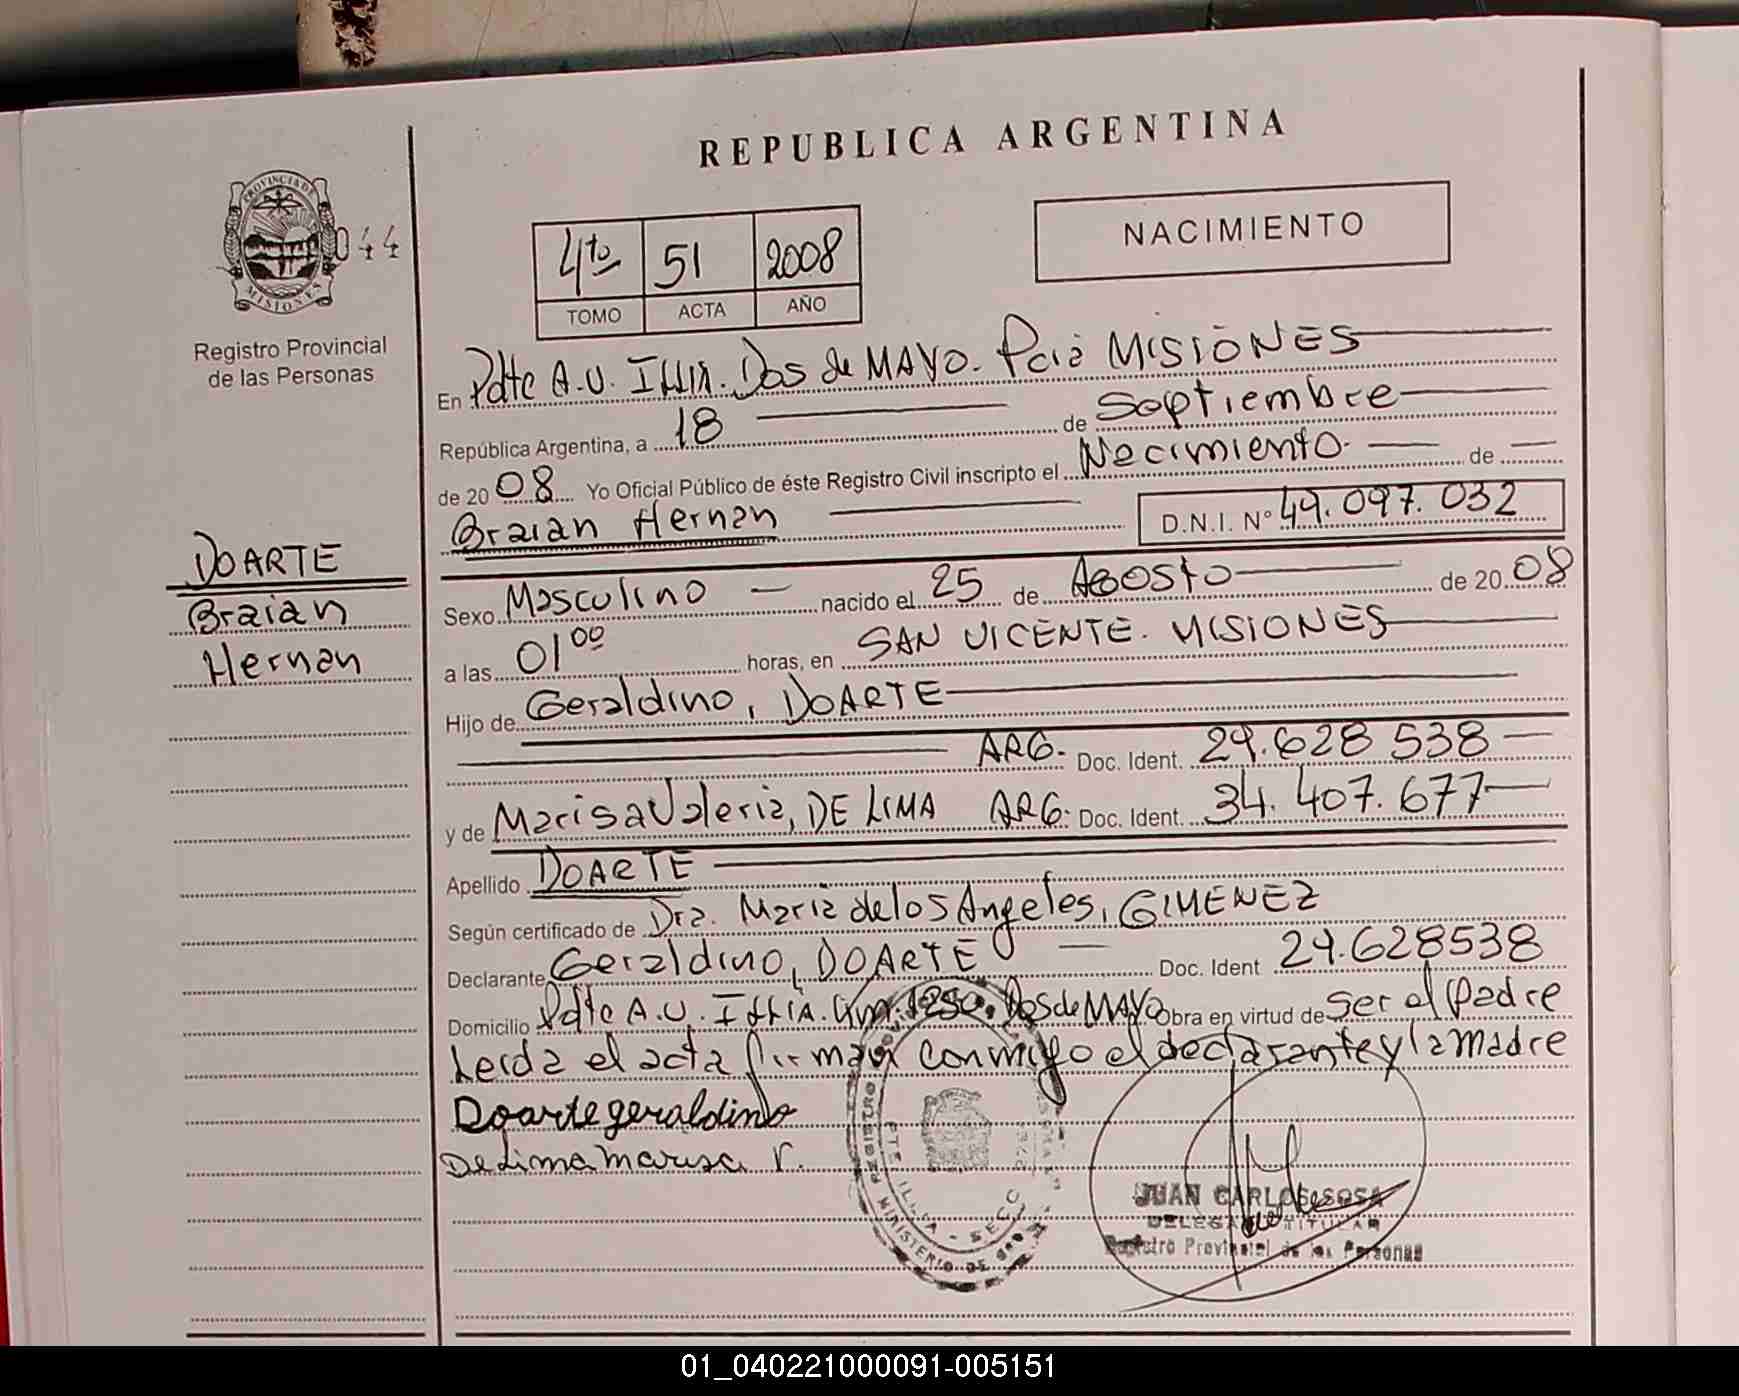 REPUBLICA ARGENTINA
PROVINCIA DE
MISIONES
044
Registro Provincial
de las Personas
4to 51 2008
TOMO ACTA AÑO
NACIMIENTO
En Pdte A.U. Illia. Dos de MAYO. Pcia MISIONES
República Argentina, a 18 de Septiembre
de 2008 Yo Oficial Público de éste Registro Civil inscripto el Nacimiento de
Braian Hernan D.N.I. Nº 49.097.032
DOARTE
Braian
Hernan
Sexo Masculino nacido el 25 de Agosto de 2008
a las 01 00 horas, en SAN VICENTE. MISIONES
Hijo de Geraldino, DOARTE
ARG. Doc. Ident. 29.628 538
y de Marisa Valeria, DE LIMA ARG. Doc. Ident. 34.407.677
Apellido DOARTE
Según certificado de Dra. Maria de los Angeles, GIMENEZ
Declarante Geraldino, DOARTE Doc. Ident 29.628538
Domicilio Pdte A.U. Illia. Km. 1250. Dos de MAYO Obra en virtud de Ser el Padre
Leida el acta firman conmigo el declarante y la madre
Doarte geraldino
De Lima Marisa V.
REGISTRO
PTE ILLIA - SECC
MINISTERIO DE GOB
JUAN CARLOS SOSA
DELEGADO TITULAR
Registro Provincial de las Personas
01_040221000091-005151